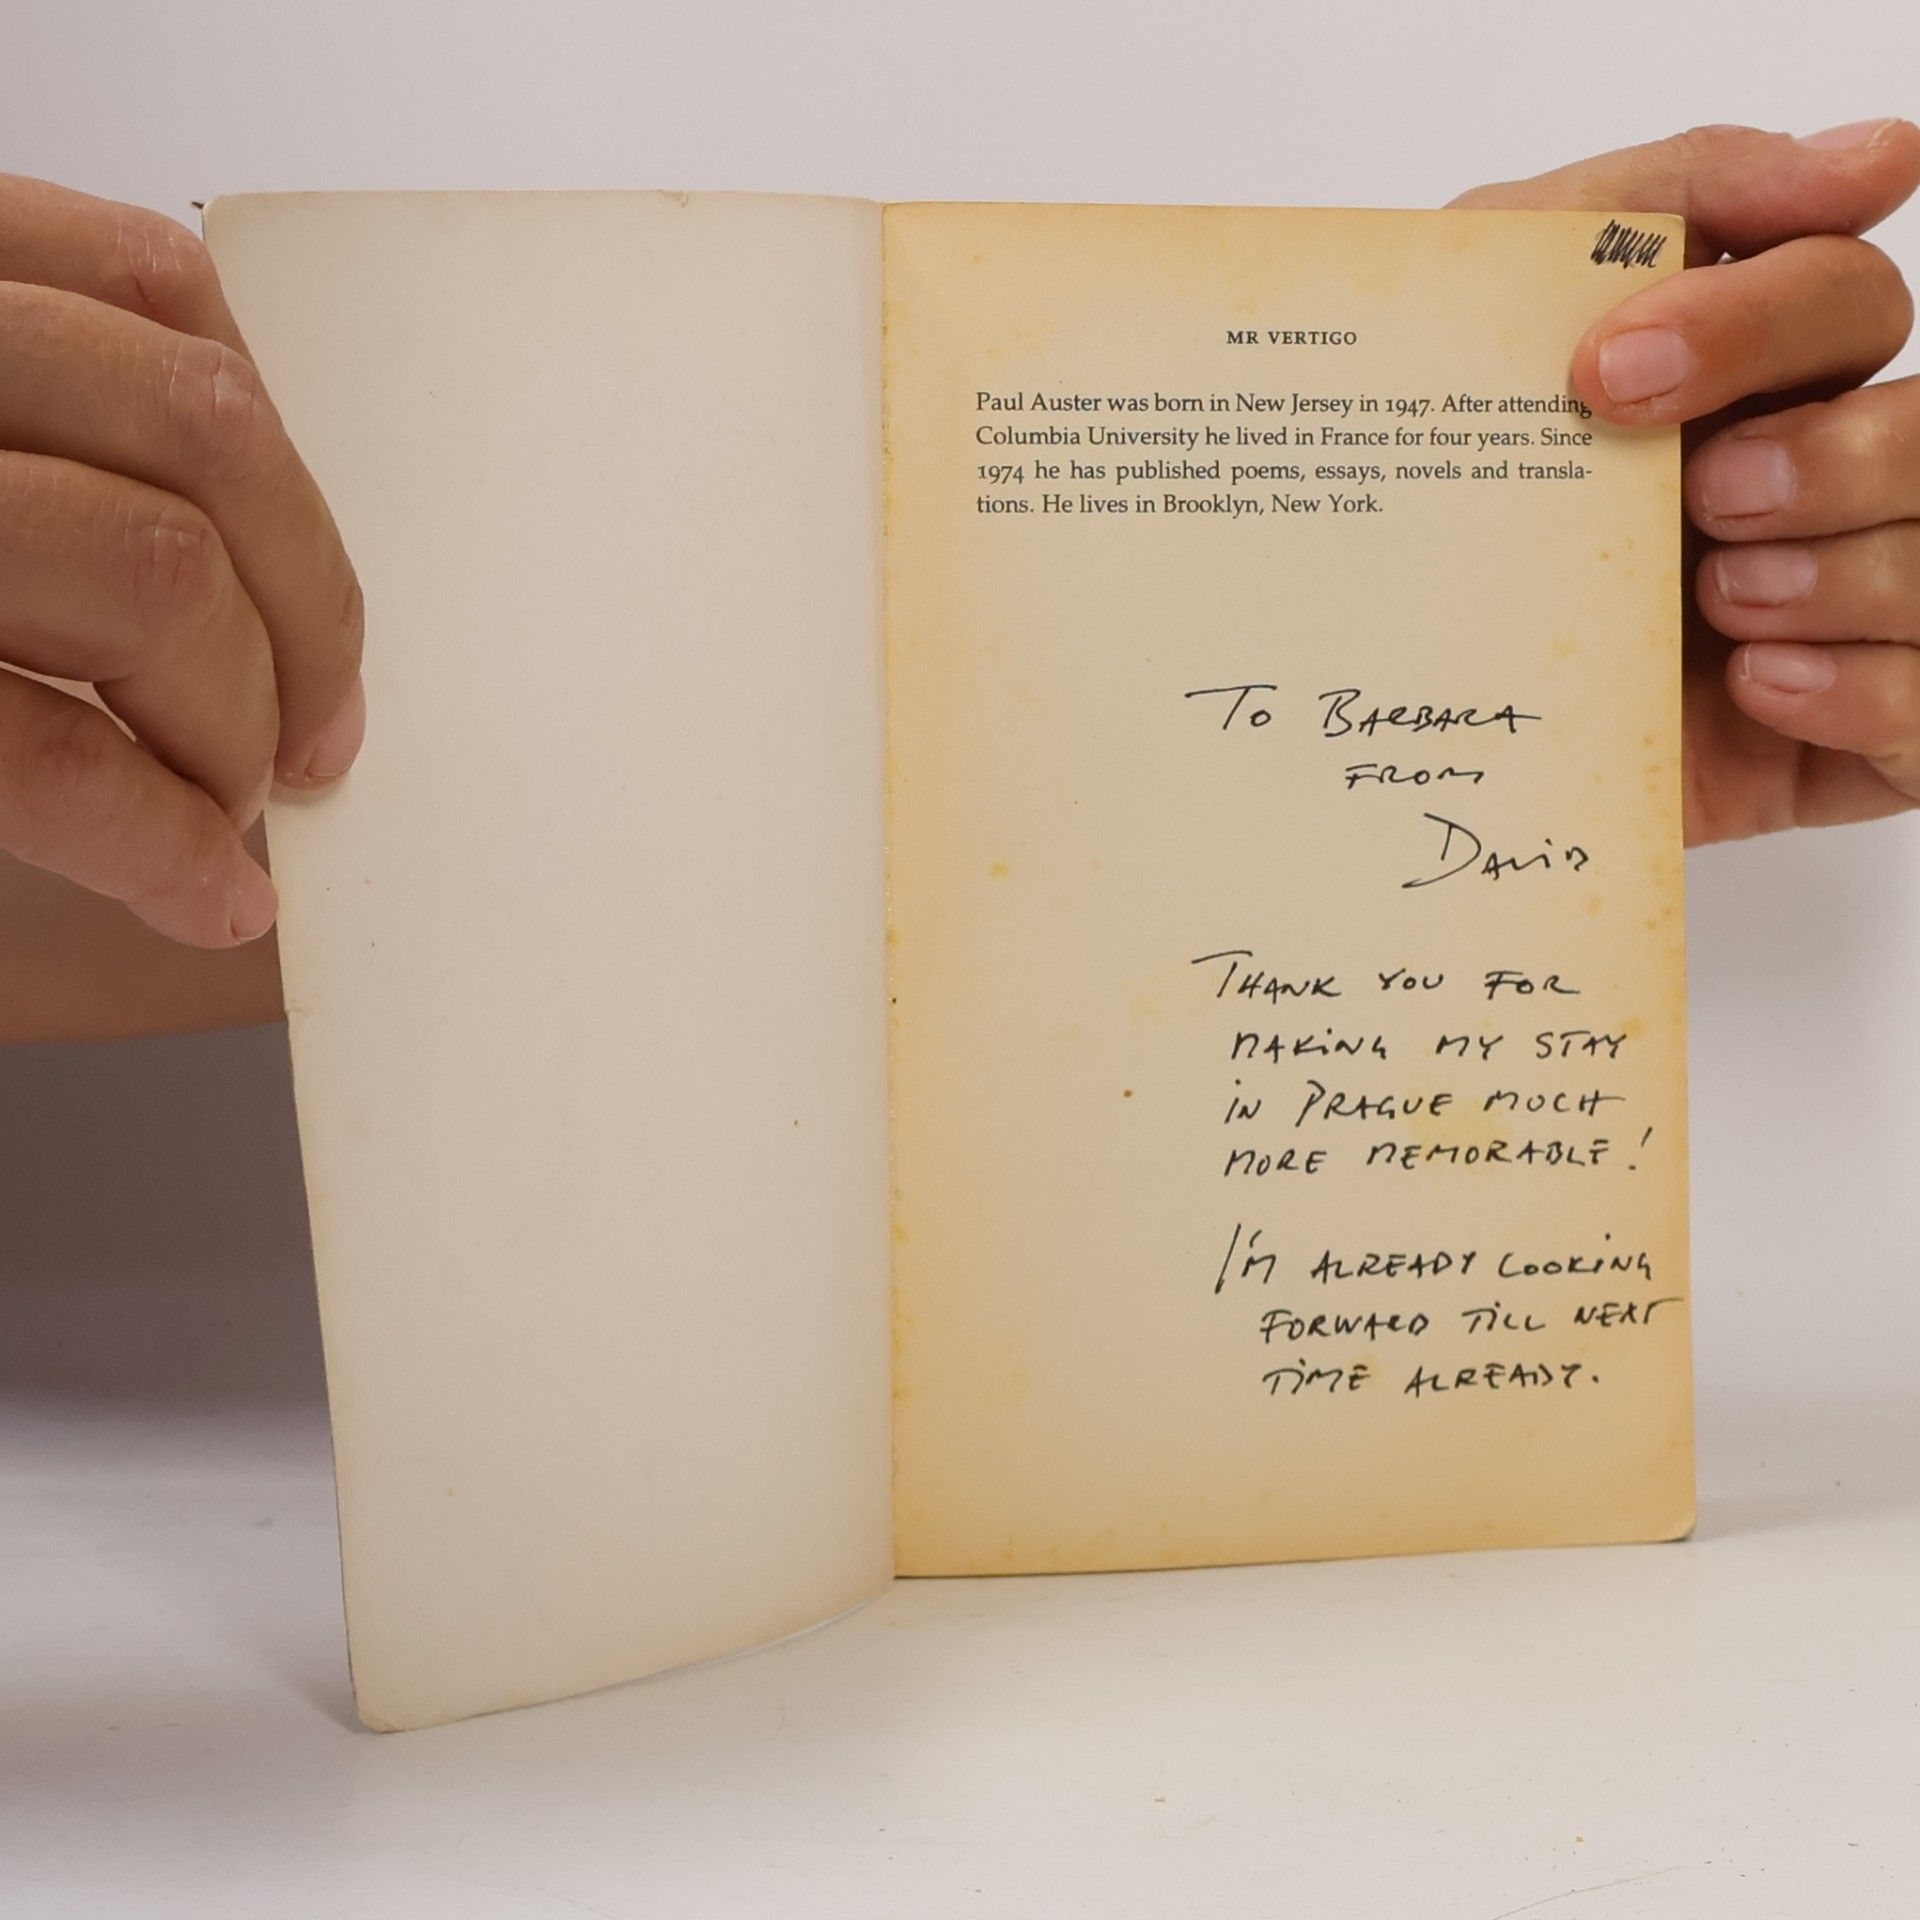 MR VERTIGO
Paul Auster was born in New Jersey in 1947. After attending
Columbia University he lived in France for four years. Since
1974 he has published poems, essays, novels and transla-
tions. He lives in Brooklyn, New York.
TO BARBARA
FROM
DAVID
THANK YOU FOR
MAKING MY STAY
IN PRAGUE MUCH
MORE MEMORABLE!
I'M ALREADY LOOKING
FORWARD TILL NEXT
TIME ALREADY.